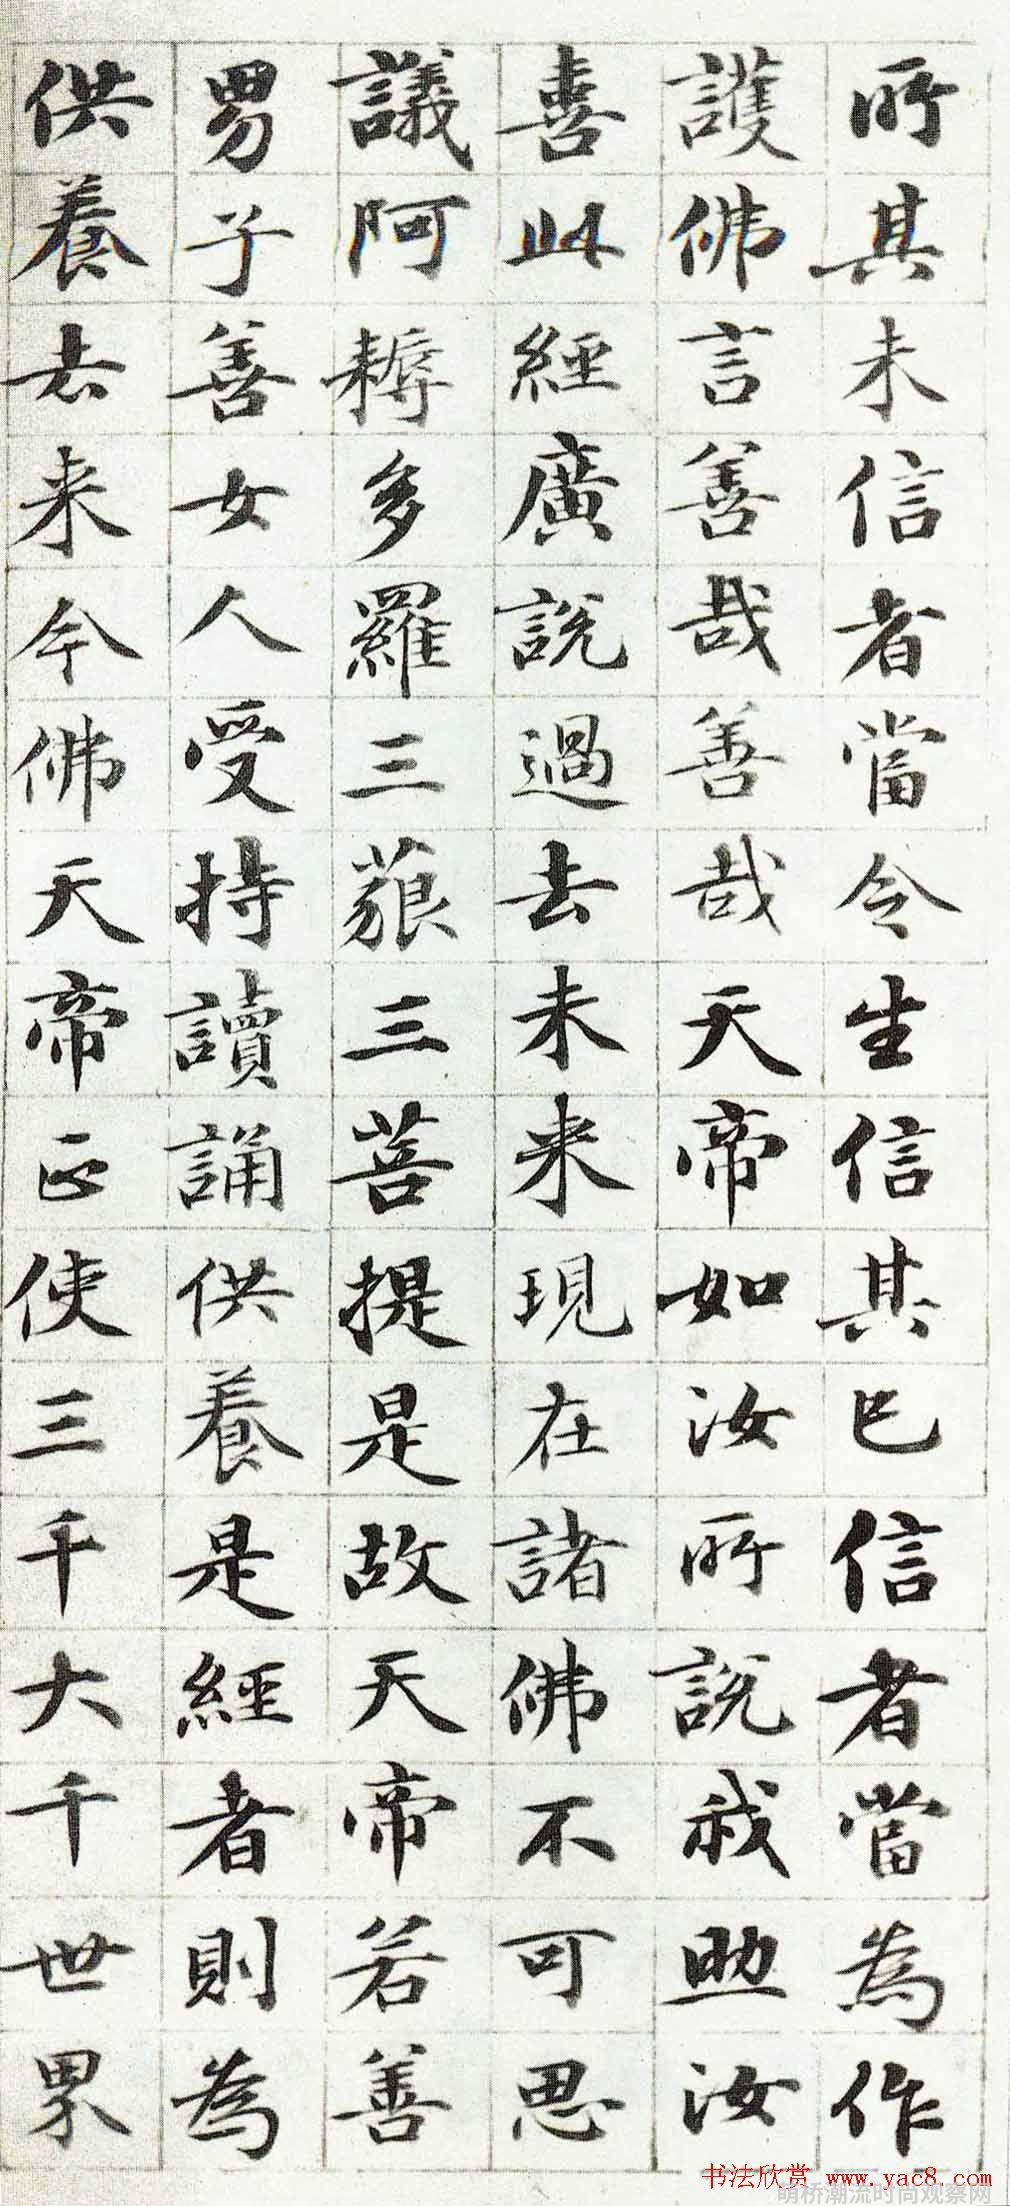 所其未信者當令生信其已信者當為作
護佛言善哉善哉天帝如汝所說我助汝
喜此經廣說過去未来現在諸佛不可思
議阿耨多羅三藐三菩提是故天帝若善
男子善女人受持讀誦供養是經者則為
供養去来今佛天帝正使三千大千世界
书法欣赏 www.yac8.com
萌桥潮流时尚观察网